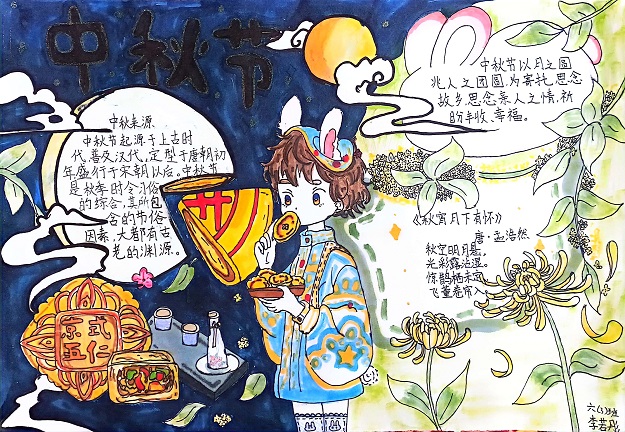 中秋节
中秋来源
中秋节起源于上古时
代,普及汉代,定型于唐朝初
年,盛行于宋朝以后。中秋节
是秋季时令习俗
的综合,其所包
含的节俗
因素,大都有古
老的渊源。
中秋节以月之圆
兆人之团圆,为寄托思念
故乡,思念亲人之情,祈
盼丰收、幸福。
《秋宵月下有怀》
唐·孟浩然
秋空明月悬,
光彩露沾湿。
惊鹊栖未定,
飞萤卷帘入
京式
五仁
六(3)班
李若丹